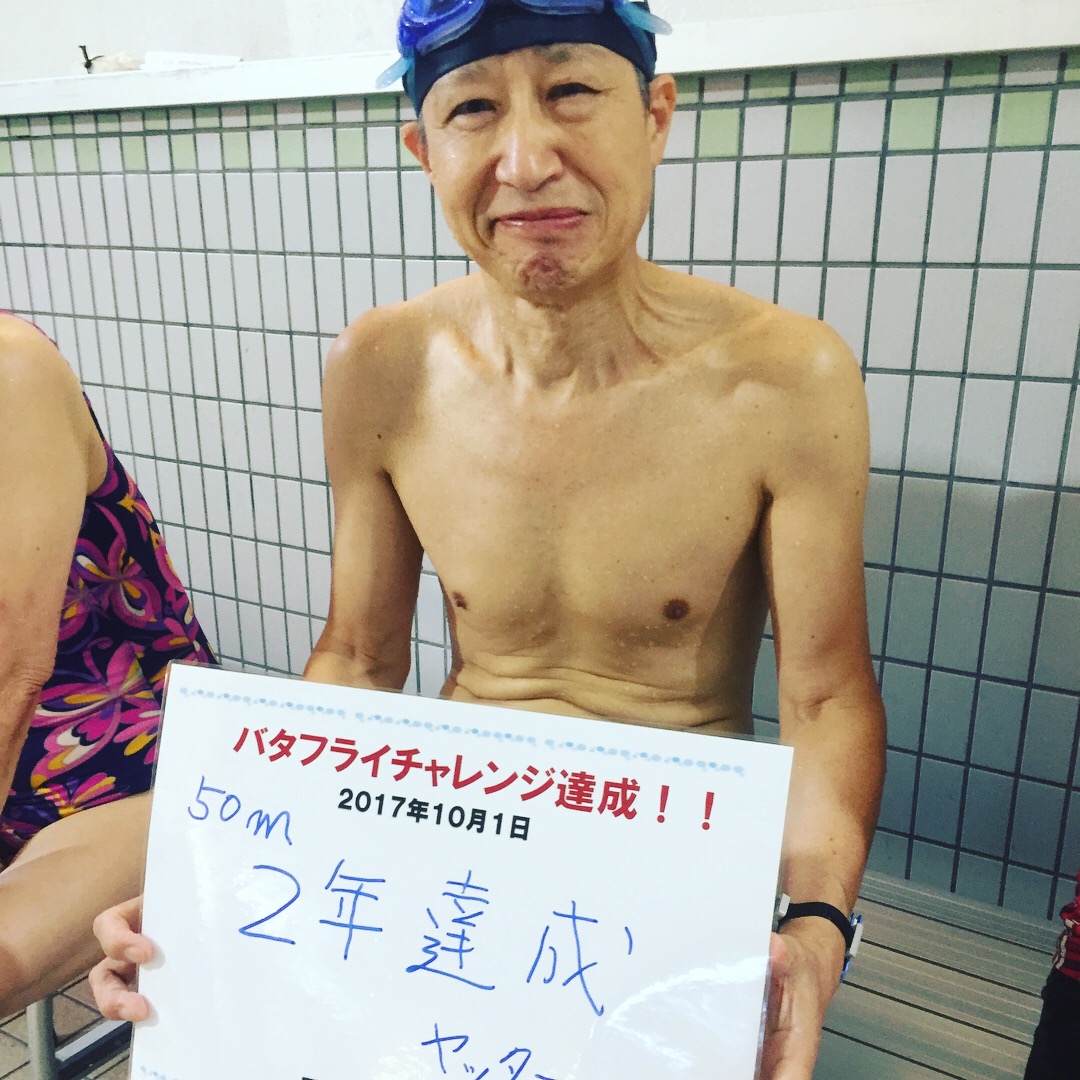 バタフライチャレンジ達成！！
2017年10月1日
50m
2年達成
ヤッター